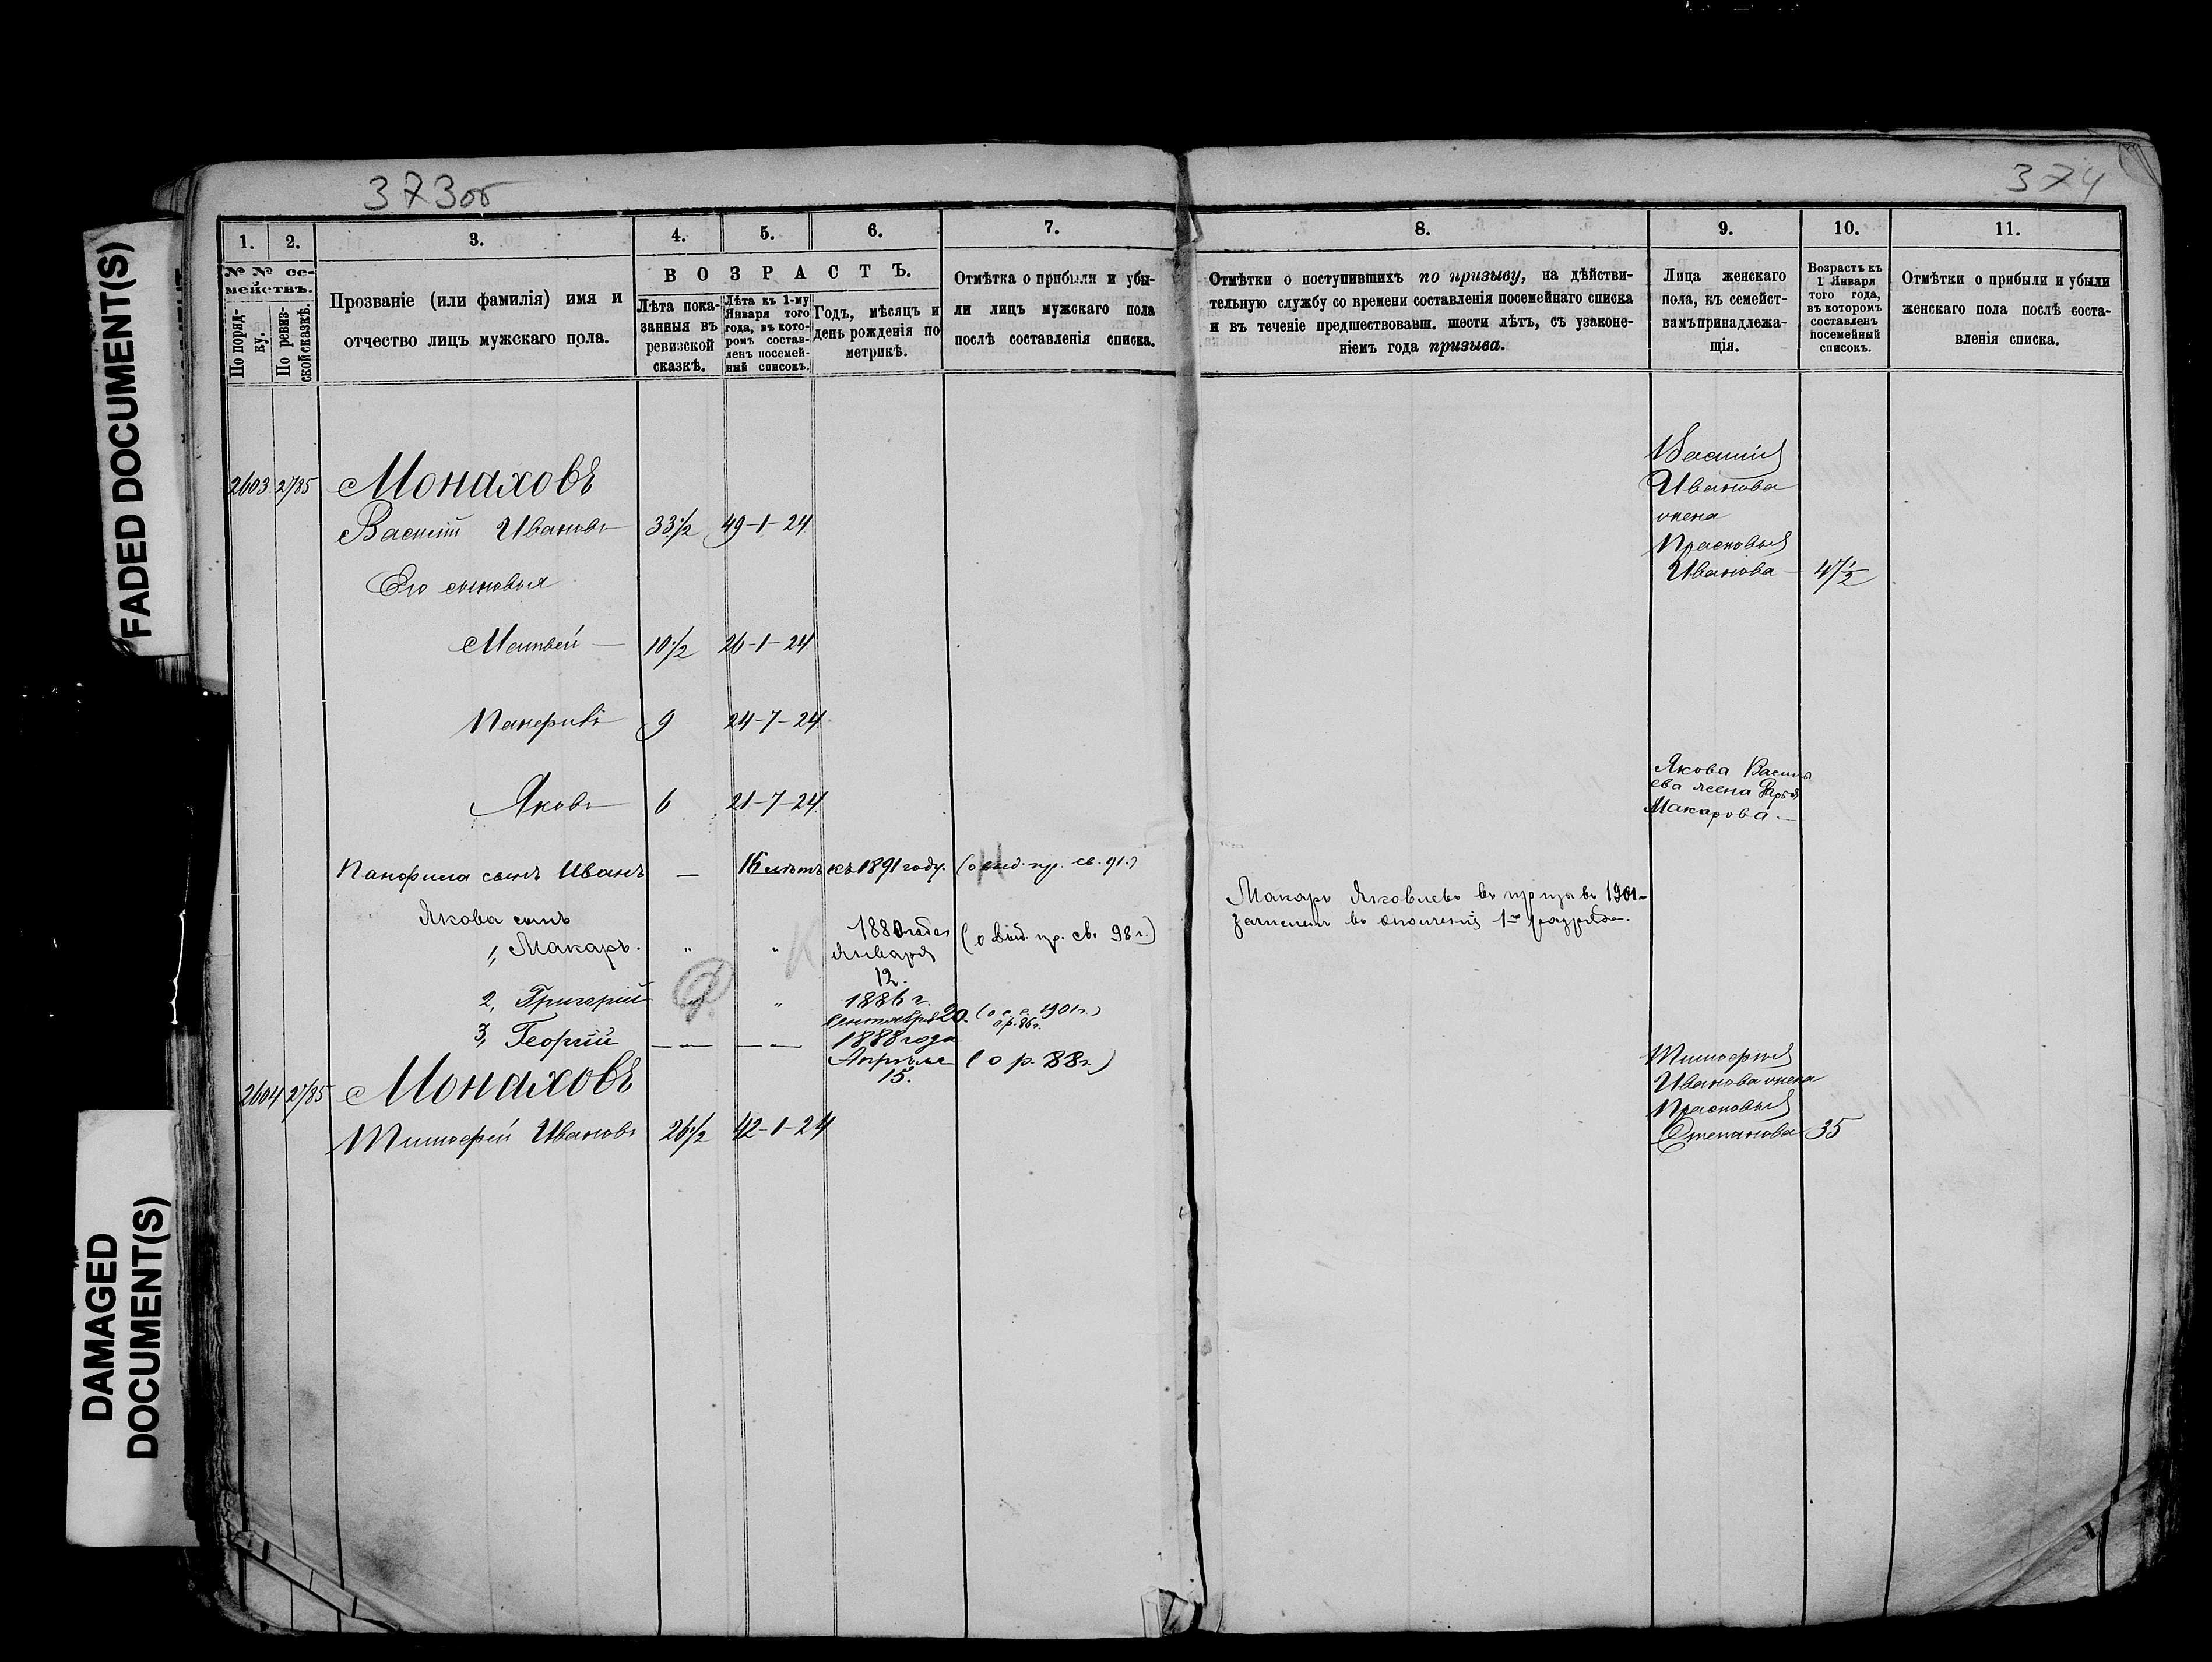 FADED DOCUMENT(S)
DAMAGED
DOCUMENT(S)
373об
1. 2. 3. 4. 5. 6. 7.
№ № се-
мействъ.
По поряд-
ку.
По ревиз-
ской сказкѣ.
Прозваніе (или фамилія) имя и
отчество лицъ мужскаго пола.
ВОЗРАСТЪ.
Лѣта пока-
занныя въ
ревизской
сказкѣ.
Лѣта къ 1-му
Января того
года, въ кото-
ромъ состав-
ленъ посемей-
ный списокъ.
Годъ, мѣсяцъ и
день рожденія по
метрикѣ.
Отмѣтка о прибыли и убы-
ли лицъ мужскаго пола
послѣ составленія списка.
2603 2785 Монаховъ
Василій Ивановъ 33 1/2 49-1-24
Его сыновья
Матвей — 10 1/2 26-1-24
Панфилъ 9 24-7-24
Яковъ 6 21-7-24
Панфила сынъ Иванъ — 16 лѣтъ къ 1891 году. (о выд. пр. св. 91.)
Якова сынъ
1, Макаръ. " " 1880 года
Января
12.
(о выд. пр. св. 98 г.)
2, Григорій " 1886 г.
Сентября 20. (о с. с. 1901 г.)
о р. 86 г.
3, Георгій — " — — " — 1888 года
Апрѣля
15.
(о р. 88 г.)
2604 2785 Монаховъ
Тимофей Ивановъ 26 1/2 42-1-24
374
8. 9. 10. 11.
Отмѣтки о поступившихъ по призыву, на дѣйстви-
тельную службу со времени составленія посемейнаго списка
и въ теченіе предшествовавш. шести лѣтъ, съ узаконе-
ніемъ года призыва.
Лица женскаго
пола, къ семейст-
вамъ принадлежа-
щія.
Возрастъ къ
1 Января
того года,
въ которомъ
составленъ
посемейный
списокъ.
Отмѣтки о прибыли и убыли
женскаго пола послѣ соста-
вленія списка.
Василія
Иванова
жена
Прасковья
Иванова — 47 1/2
Якова Василь
ева жена Дарья
Макарова —
Макаръ Яковлевъ въ призывъ 1901
зачисленъ въ ополченіе 1го разряда.
Тимофея
Иванова жена
Прасковья
Степанова 35